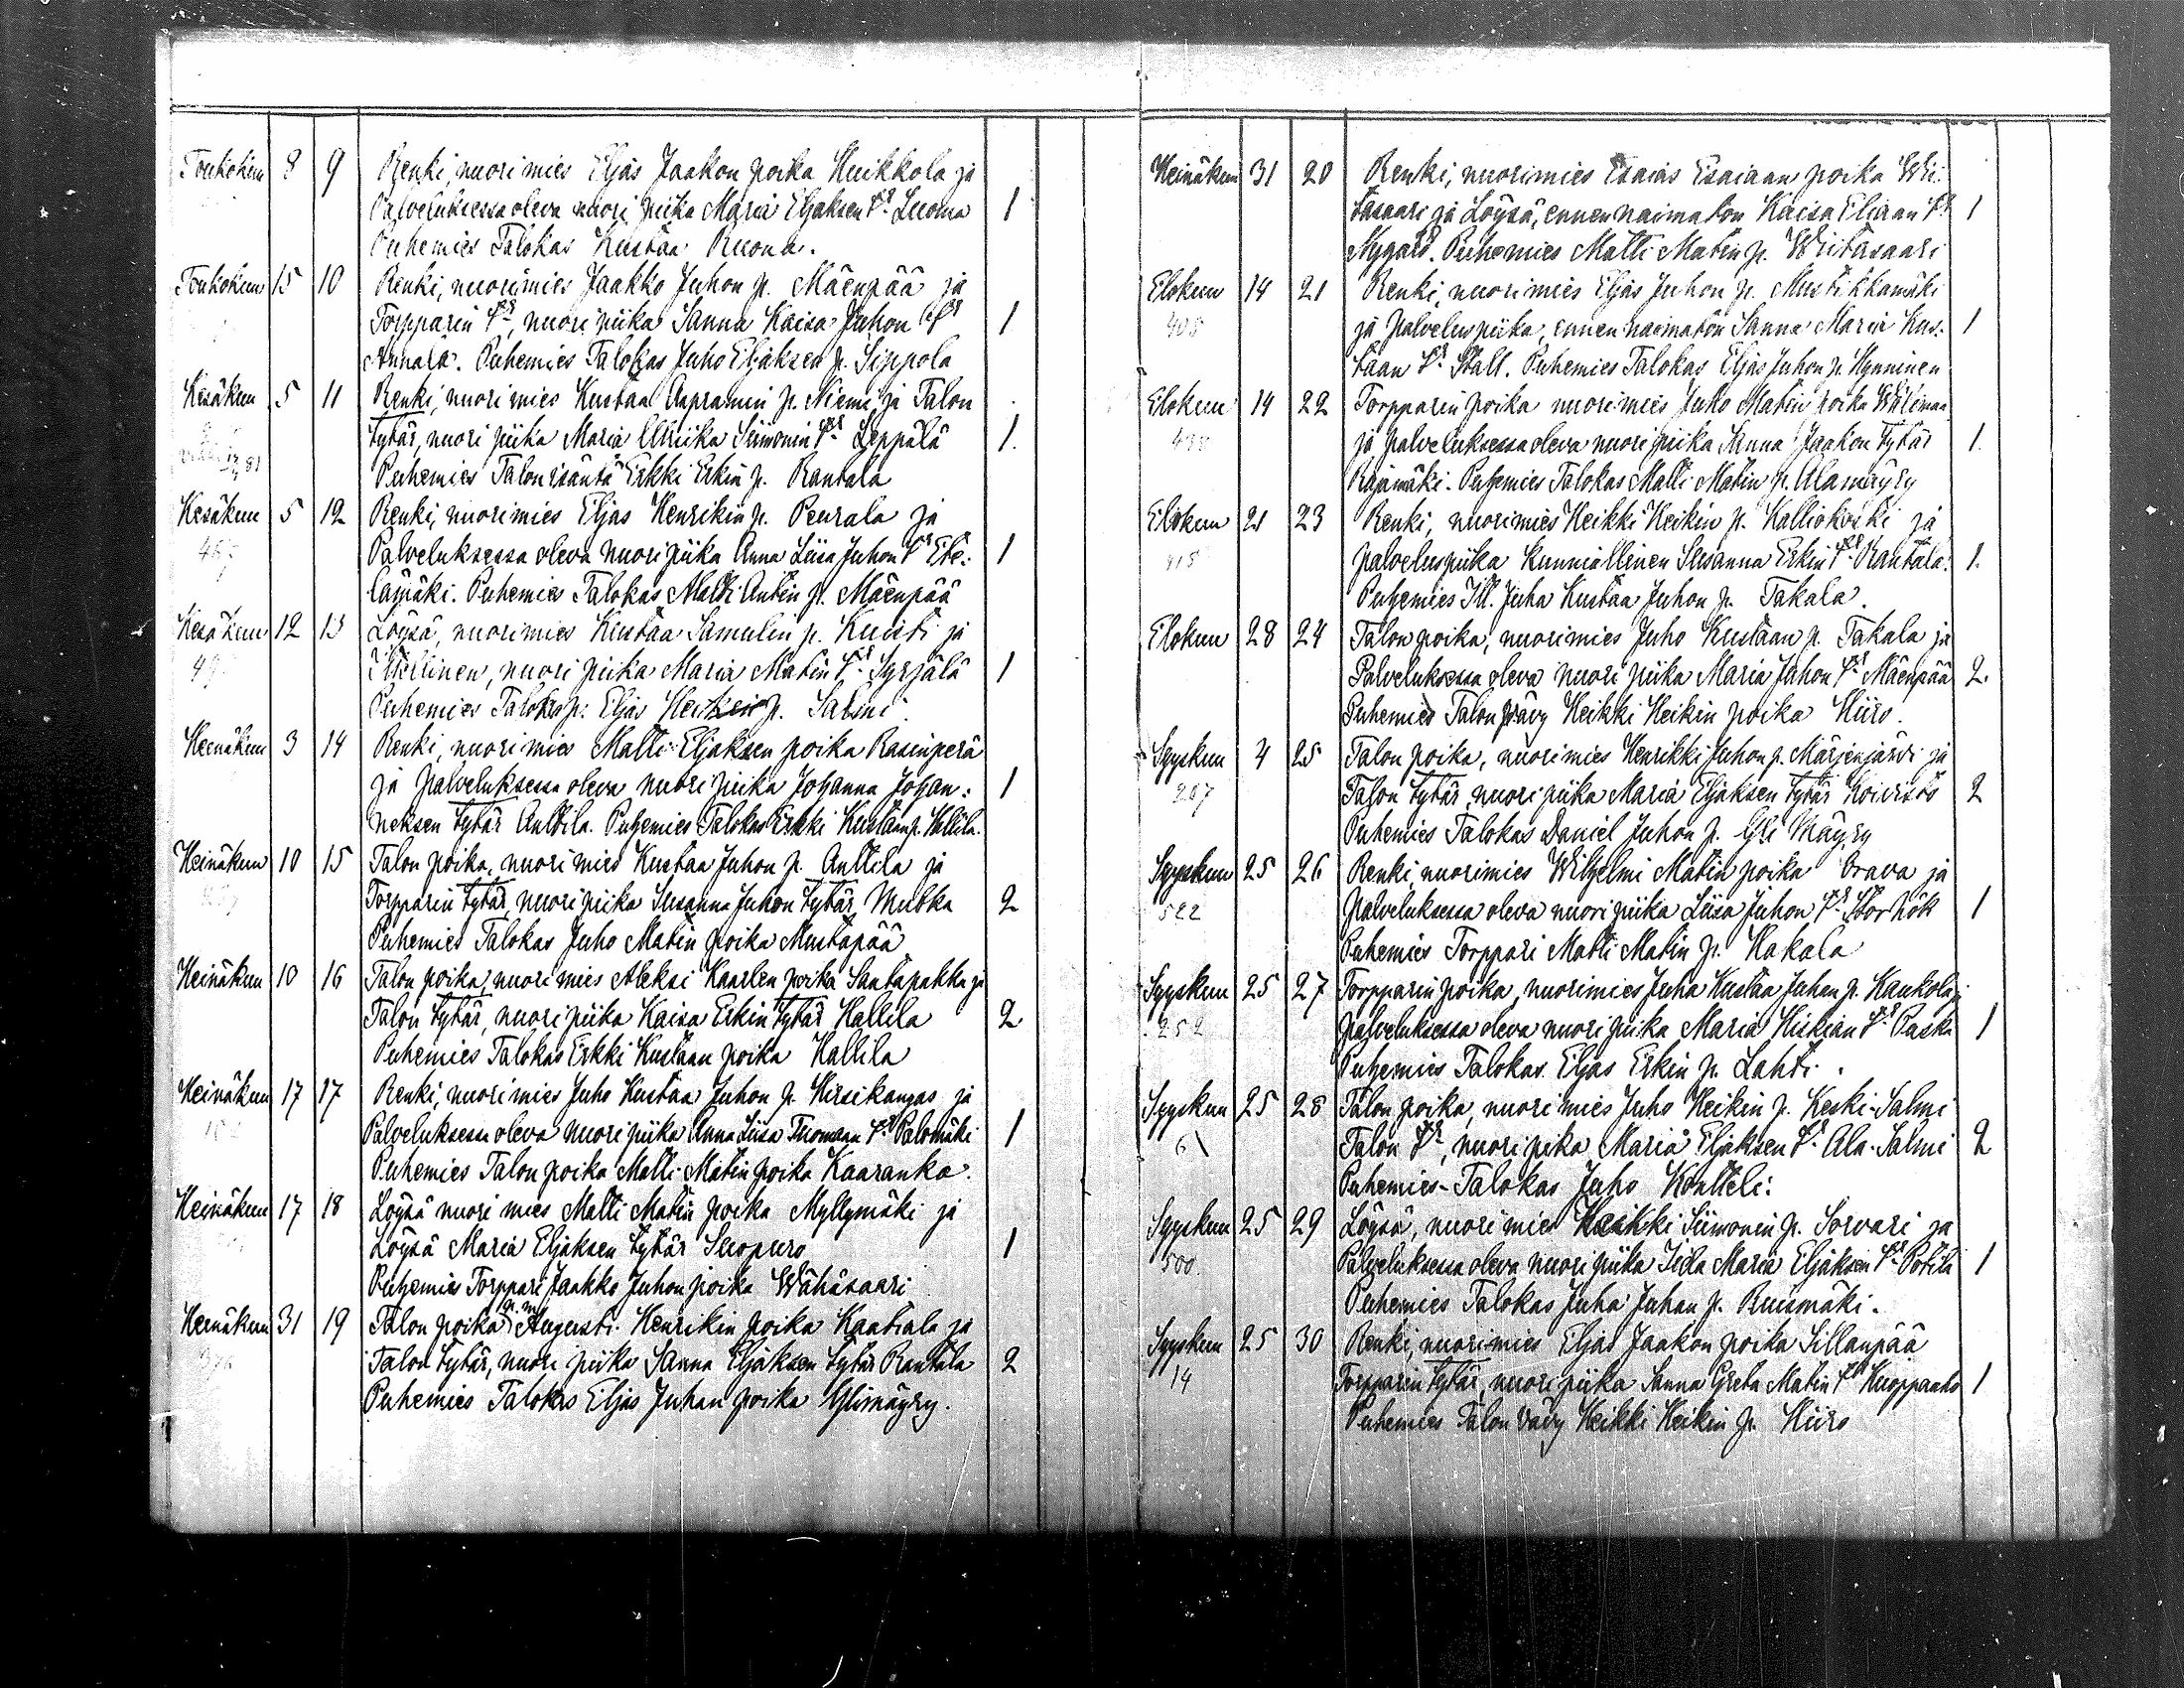 Toukokuu 8 9 Renki, nuori mies Eljas Jaakon poika Huikkola ja
Palveluksessa oleva nuori piika Maria Eljaksen tr Luoma 1
Puhemies Talokas Kustaa Ruona.
Toukokuu 15 10 Renki, nuori mies Jaakko Juhon p. Mäenpää ja
Torpparin tr, nuori piika Sanna Kaisa Juhon tr 1
Annala. Puhemies Talokas Juho Eljaksen p. Sippola
Kesäkuu 5 11 Renki, nuori mies Kustaa Aapramin p. Niemi ja Talon
tytär, nuori piika Maria Ulriika Siimonin tr Leppälä 1.
Puhemies Talon isäntä Erkki Erkin p. Rantala
Kesäkuu 5 12 Renki, nuori mies Eljas Henrikin p. Peurala ja
Palveluksessa oleva nuori piika Anna Liisa Juhon tr Ete: 1
lämäki. Puhemies Talokas Matti Antin p. Mäenpää
Kesäkuu 12 13 Löysä, nuori mies Kustaa Samulin p. Kuisti ja
Itellinen, nuori piika Maria Matin tr Syrjälä 1
Puhemies Talokas p: Eljas Heikin p. Salmi
Heinäkuu 3 14 Renki, nuori mies Matti Eljaksen poika Rasinperä
ja palveluksessa oleva nuori piika Johanna Johan: 1
neksen tytär Anttila. Puhemies Talokas Erkki Kustaan p. Hallila.
Heinäkuu 10 15 Talon poika, nuori mies Kustaa Juhon p. Anttila ja
Torpparin tytär, nuori piika Susanna Juhon tytär Mutka 2
Puhemies Talokas Juho Matin poika Mustapää
Heinäkuu 10 16 Talon poika, nuori mies Aleksi Kaarlen poika Santapakka ja
Talon tytär, nuori piika Kaisa Erkin tytär Hallila 2
Puhemies Talokas Erkki Kustaan poika Hallila
Heinäkuu 17 17 Renki, nuori mies Juho Kustaa Juhon p. Hirsikangas ja
Palveluksessa oleva nuori piika Anna Liisa Tuomaan tr Palomäki 1
Puhemies Talon poika Matti Matin poika Kaaranka.
Heinäkuu 17 18 Löysä nuori mies Matti Matin poika Myllymäki ja
Löysä Maria Eljaksen tytär Suopuro 1
Puhemies Torppari Jaakko Juhon poika Wähäsaari
Heinäkuu 31 19 Talon poika n. m. Augusti Henrikin poika Kaatiala ja
Talon tytär, nuori piika Sanna Eljaksen tytär Rantala 2
Puhemies Talokas Eljas Juhan poika Ylimäyry.
Heinäkuu 31 20 Renki, nuorimies Esaias Esaiaan poika Wii:
tasaari ja Löysä, ennen naimaton Kaisa Eliaan tr 1
Nygård. Puhemies Matti Matin p. Wiitasaari
Elokuu 14 21 Renki, nuorimies Eljas Juhon p. Mustikkamäki
405 ja palvelus piika, ennen naimaton Sanna Maria Kus: 1
taan tr Stalt. Puhemies Talokas Eljas Juhon p. Hynninen
Elokuu 14 22 Torpparin poika nuorimies Juho Matin poika
438 ja palveluksessa oleva nuori piika Sanna Jaakon tytär 1.
Rajamäki. Puhemies Talokas Matti Matin p. Alamäyry
Elokuu 21 23 Renki, nuorimies Heikki Heikin p. Kalliokoski ja
415 palveluspiika kunniallinen Susanna Erkin tr Rantala: 1.
Puhemies Itl. Juha Kustaa Juhon p. Takala.
Elokuu 28 24 Talon poika, nuorimies Juho Kustaan p. Takala ja
Palveluksessa oleva nuori piika Maria Juhon tr Mäenpää 2.
Puhemies Talon vävy Heikki Heikin poika Hiiro.
Syyskuu 4 25 Talon poika, nuorimies Henrikki Juhon p. Marjenjärvi ja
207 Talon tytär nuori piika Maria Eljaksen tytär Koivisto 2
Puhemies Talokas Daniel Juhon p. Yli Mäyry
Syyskuu 25 26 Renki, nuorimies Wilhelmi Matin poika Orava ja
522 palveluksessa oleva nuori piika Liisa Juhon tr Storhök 1
Puhemies Torppari Matti Matin p. Kakala
Syyskuu 25 27 Torpparin poika, nuorimies Juha Kustaa Juhan p. Kaukola ja
252 palveluksessa oleva nuori piika Maria Hiskian tr Paski 1
Puhemies Talokas Eljas Erkin p. Lahti.
Syyskuu 25 28 Talon poika, nuorimies Juho Heikin p. Keski-Salmi
61 Talon tr, nuori piika Maria Eljaksen tr Ala-Salmi 2
Puhemies-Talokas Juho Kontteli:
Syyskuu 25 29 Löysä, nuorimies Heikki Siimonin p. Sorvari ja
500. Palveluksessa oleva nuori piika Iida Maria Eljaksen tr Potila 1
Puhemies Talokas Juha Juhan p. Ruismäki.
Syyskuu 25 30 Renki, nuorimies Eljas Jaakon poika Sillanpää
14 Torpparin tytär, nuori piika Sanna Greta Matin tr Kuoppaaho 1
Puhemies Talon vävy Heikki Heikin p. Hiiro